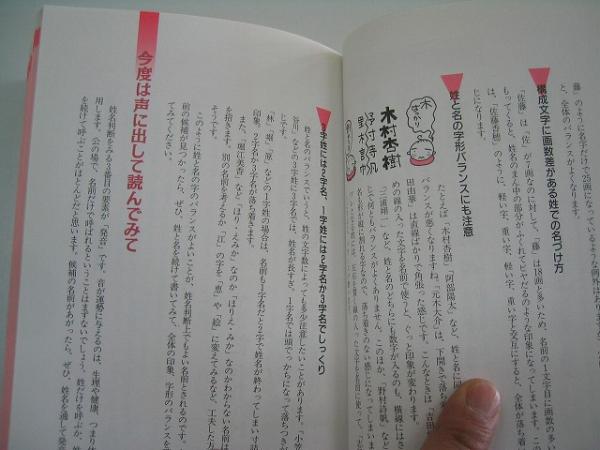 藤」のように名字だけで25画
と、全体のバランスがよくなります。
構成文字に画数差がある姓での名づけ方
「佐藤」は「佐」が7画なのに対して、「藤」は18画と多いため、名前の1文字目に画数の多い
もってくると、姓名のまん中の部分がふくれてビヤだるのような印象になってしまいます。こ
は、「佐藤香樹」のように、軽い字、重い字、軽い字、重い字と交互にすると、全体が落ち着
じになります。
姓と名の字形バランスにも注意
たとえば「木村杏樹」「阿部陽太」など、姓と名に同
バランスが悪くなりますね。「元木大介」は、下開きで落ち
田由華」は直線ばかりで角張った感じです。こんなときは「吉田
めの線の入った文字を名前で使うと、ぐっと印象が変わります。
「三道靖一」など、姓と名のどちらにも数字が入るのも、横線にはさ
じで何ともバランスがよくありません。このほか、「野村詩帆」など
木ばっかり
木村杏樹
3字姓には2字名、1字姓には2字名か3字名でしっくり
姓と名のバランスでいうと、姓の文字数によっても多少注意したいことがあります。「小笠
谷川」などの3字姓に3字名では、姓名が長すぎ、1字名では頭でっかちになって落ちつきが
じです。
「林」「堀」「原」などの1字姓の場合は、名前も1字名だと2字で姓名が終わってしまい寸詰
印象。2字名か3字名が落ち着きます。
また、「堀江美香」など、「ほり・えみか」なのか「ほりえ・みか」なのかわからない名前は
を招きます。別の名前を考えるか、「江」の字を「恵」や「絵」に変えてみるなど、工夫した方
そうです。
このように姓と名の字のバランスがよいことが、姓名判断上でもよい名前とされるのです。
前の候補が見つかったら、ぜひ、姓と名を続けて書いてみて、全体の印象、字形のバランスを
てみてください。
今度は声に出して読んでみて
姓名判断をみる3番目の要素が「発音」です。音が運勢に与えるのは、生理や健康、つまり体
用します。公の場で、名前だけで呼ばれるということはまずないでしょう。姓だけを呼ぶか、姓
を続けて呼ぶことがほとんどだと思います。候補の名前があがったら、ぜひ、姓名を通して発音